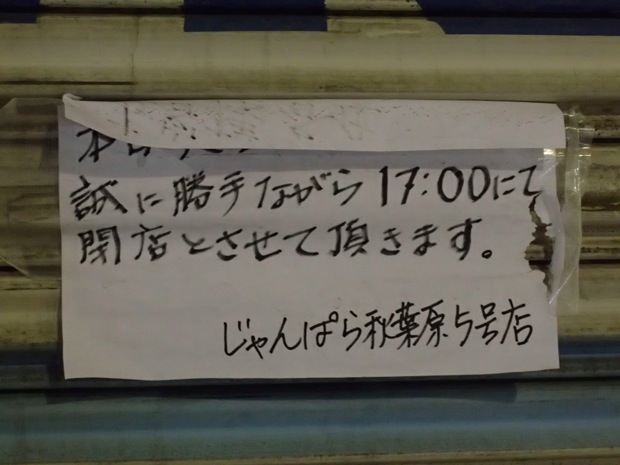 本日
誠に勝手ながら17:00にて
閉店とさせて頂きます。
じゃんぱら秋葉原5号店